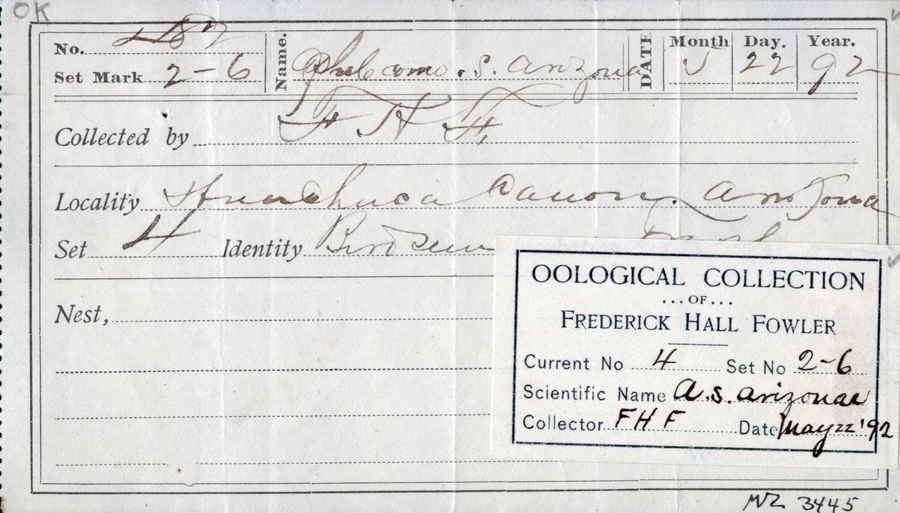 OK
No. 482
Set Mark 2-6
Name. Aphelocoma. s. arizonae
DATE
Month Day. Year.
5 22 92
Collected by F H F.
Locality Huachuca Canon. Arizona
Set 4 Identity Bird seen
Nest,
OOLOGICAL COLLECTION
...OF...
FREDERICK HALL FOWLER
Current No 4 Set No 2-6
Scientific Name A.s. arizonae
Collector FHF Date May 22 '92
MVZ 3445